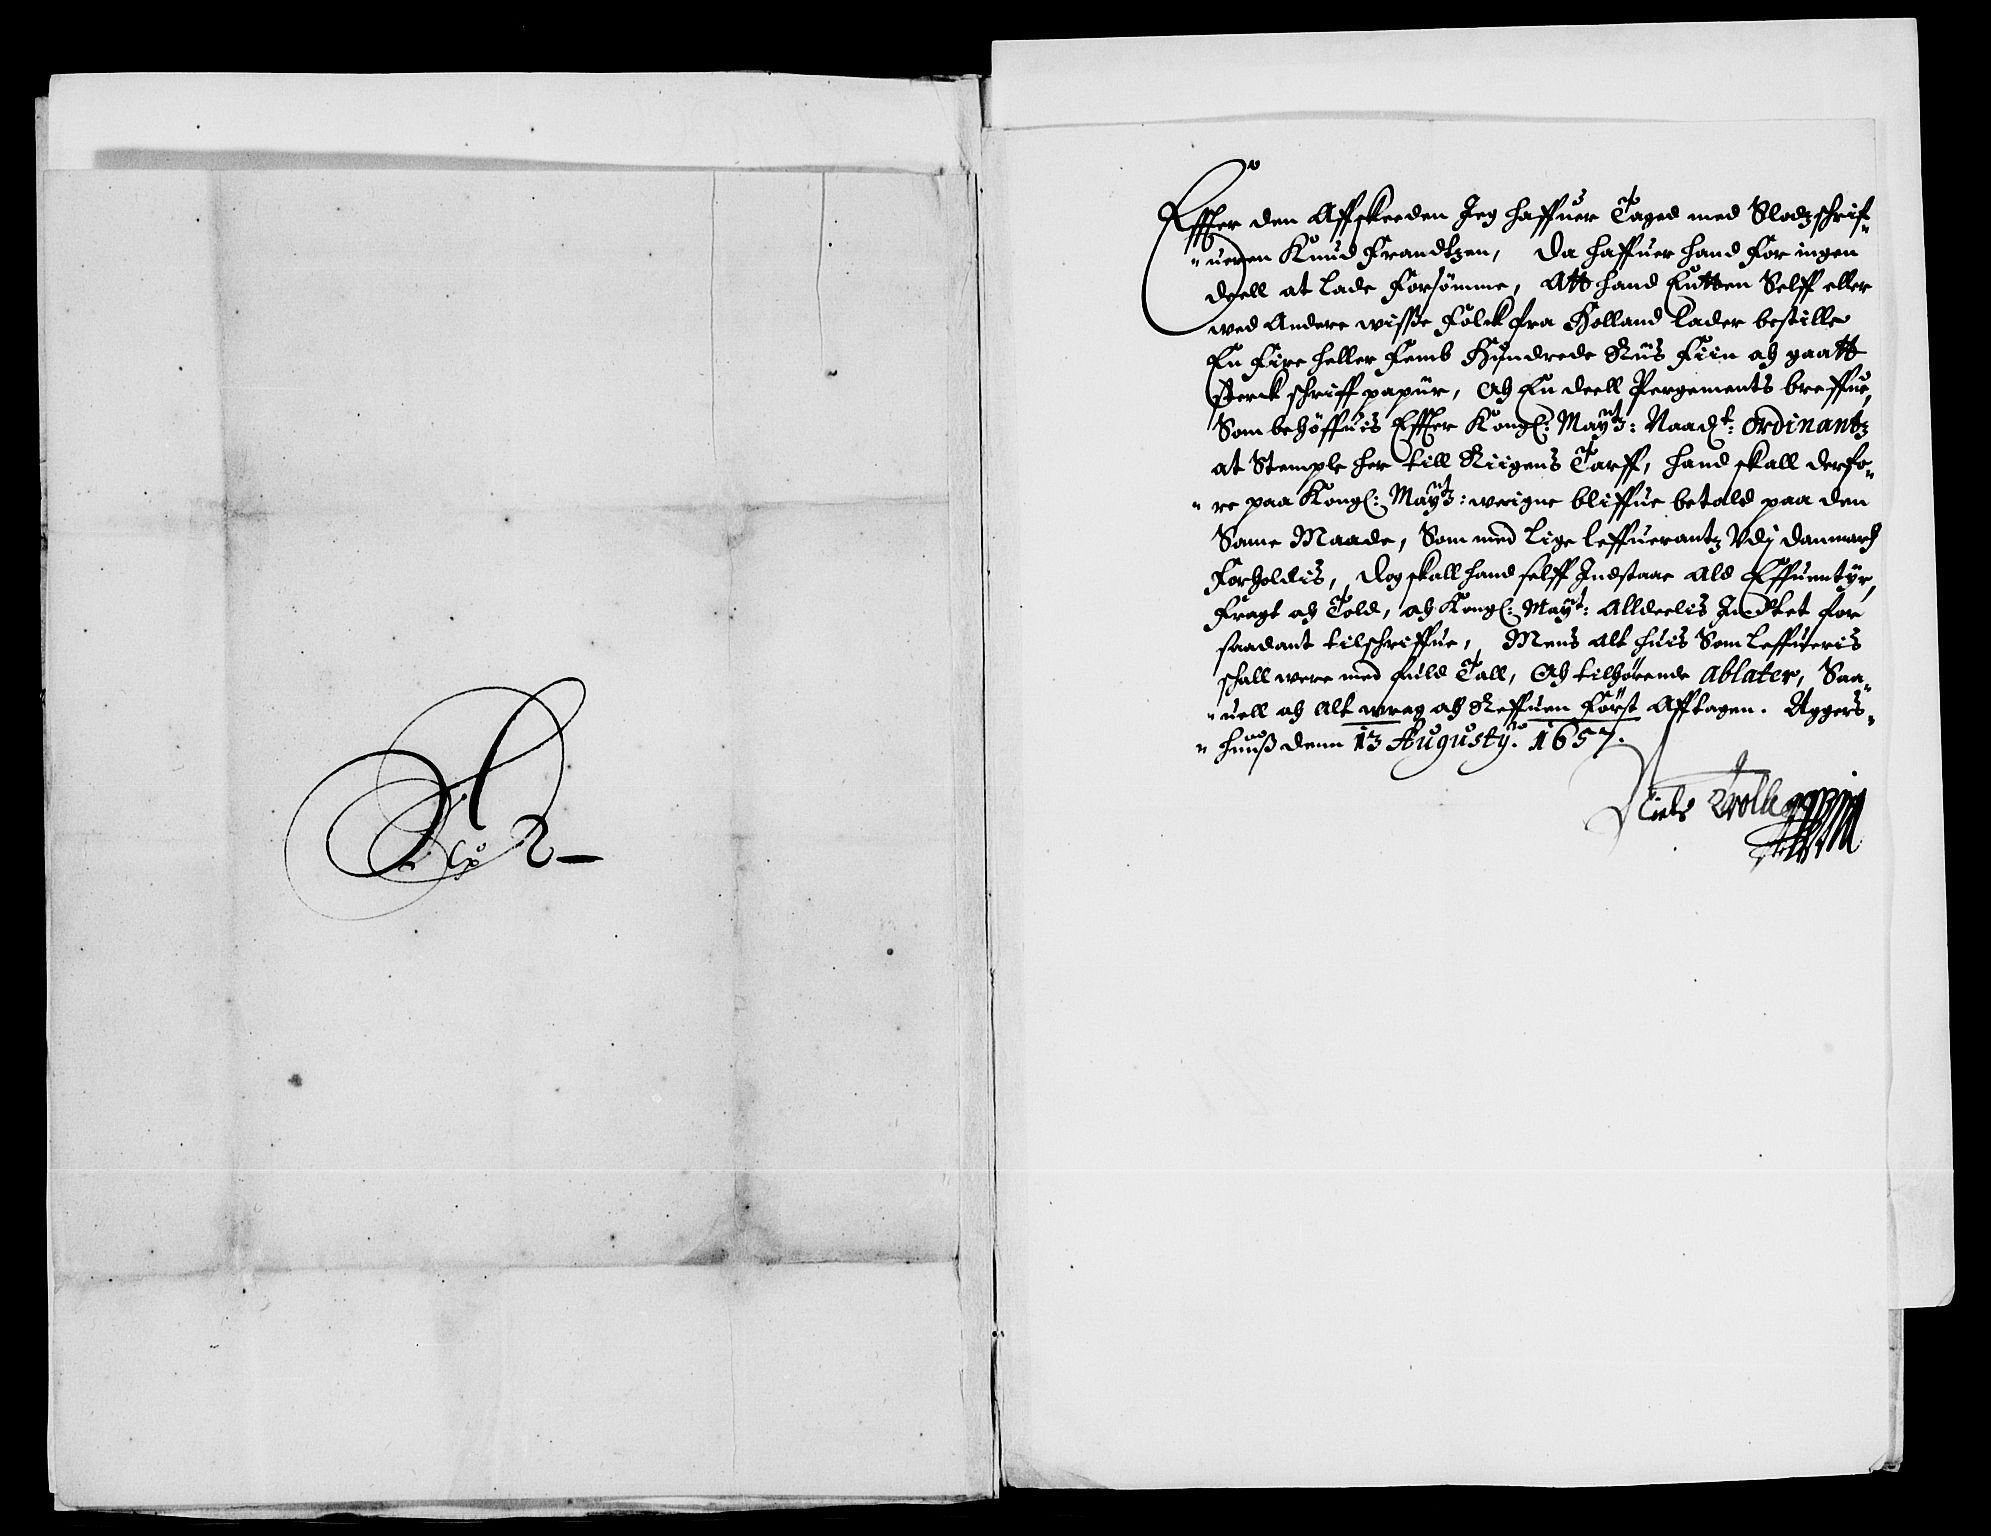 No 2
Effter den Affskeeden Jeg haffuer Taged med Slodzschrif-
-ueren Knud Frandtzen, Da haffuer hand For ingen
deell at lade Forsömme, Att hand Entten Selff eller
wed Andere wisse Folck fra Holland lader bestille
En Fire heller Femb Hundrede Riis Fiin och gaatt
sterck schriff papiir, Och En deell Pergements breffue,
Som behöffuis Effter Kongl: Maytz: Naadt: Ordinantz
at Stemple her till Riigens Tarff, hand skall derfo-
-re paa Kongl: Maytz: weigne bliffue betald paa den
Same Maade, Som med lige leffuerantz Vdj danmarch
Forholdis, Dog skall hand selff Indstaae Ald Effuentyr,
Fragt och Told, och Kongl: Mayt: Alldeelis Indtet for
saadant tilschriffue, Mens alt huis Som leffueris
schall were med fuld Tall, Och tilhörende Ablater, Saa-
-uell och Alt wrag och Reffuen Först Afftagen. Aggers-
-huuß denn 13 Augustij Ao 1657.
Niels Trolle